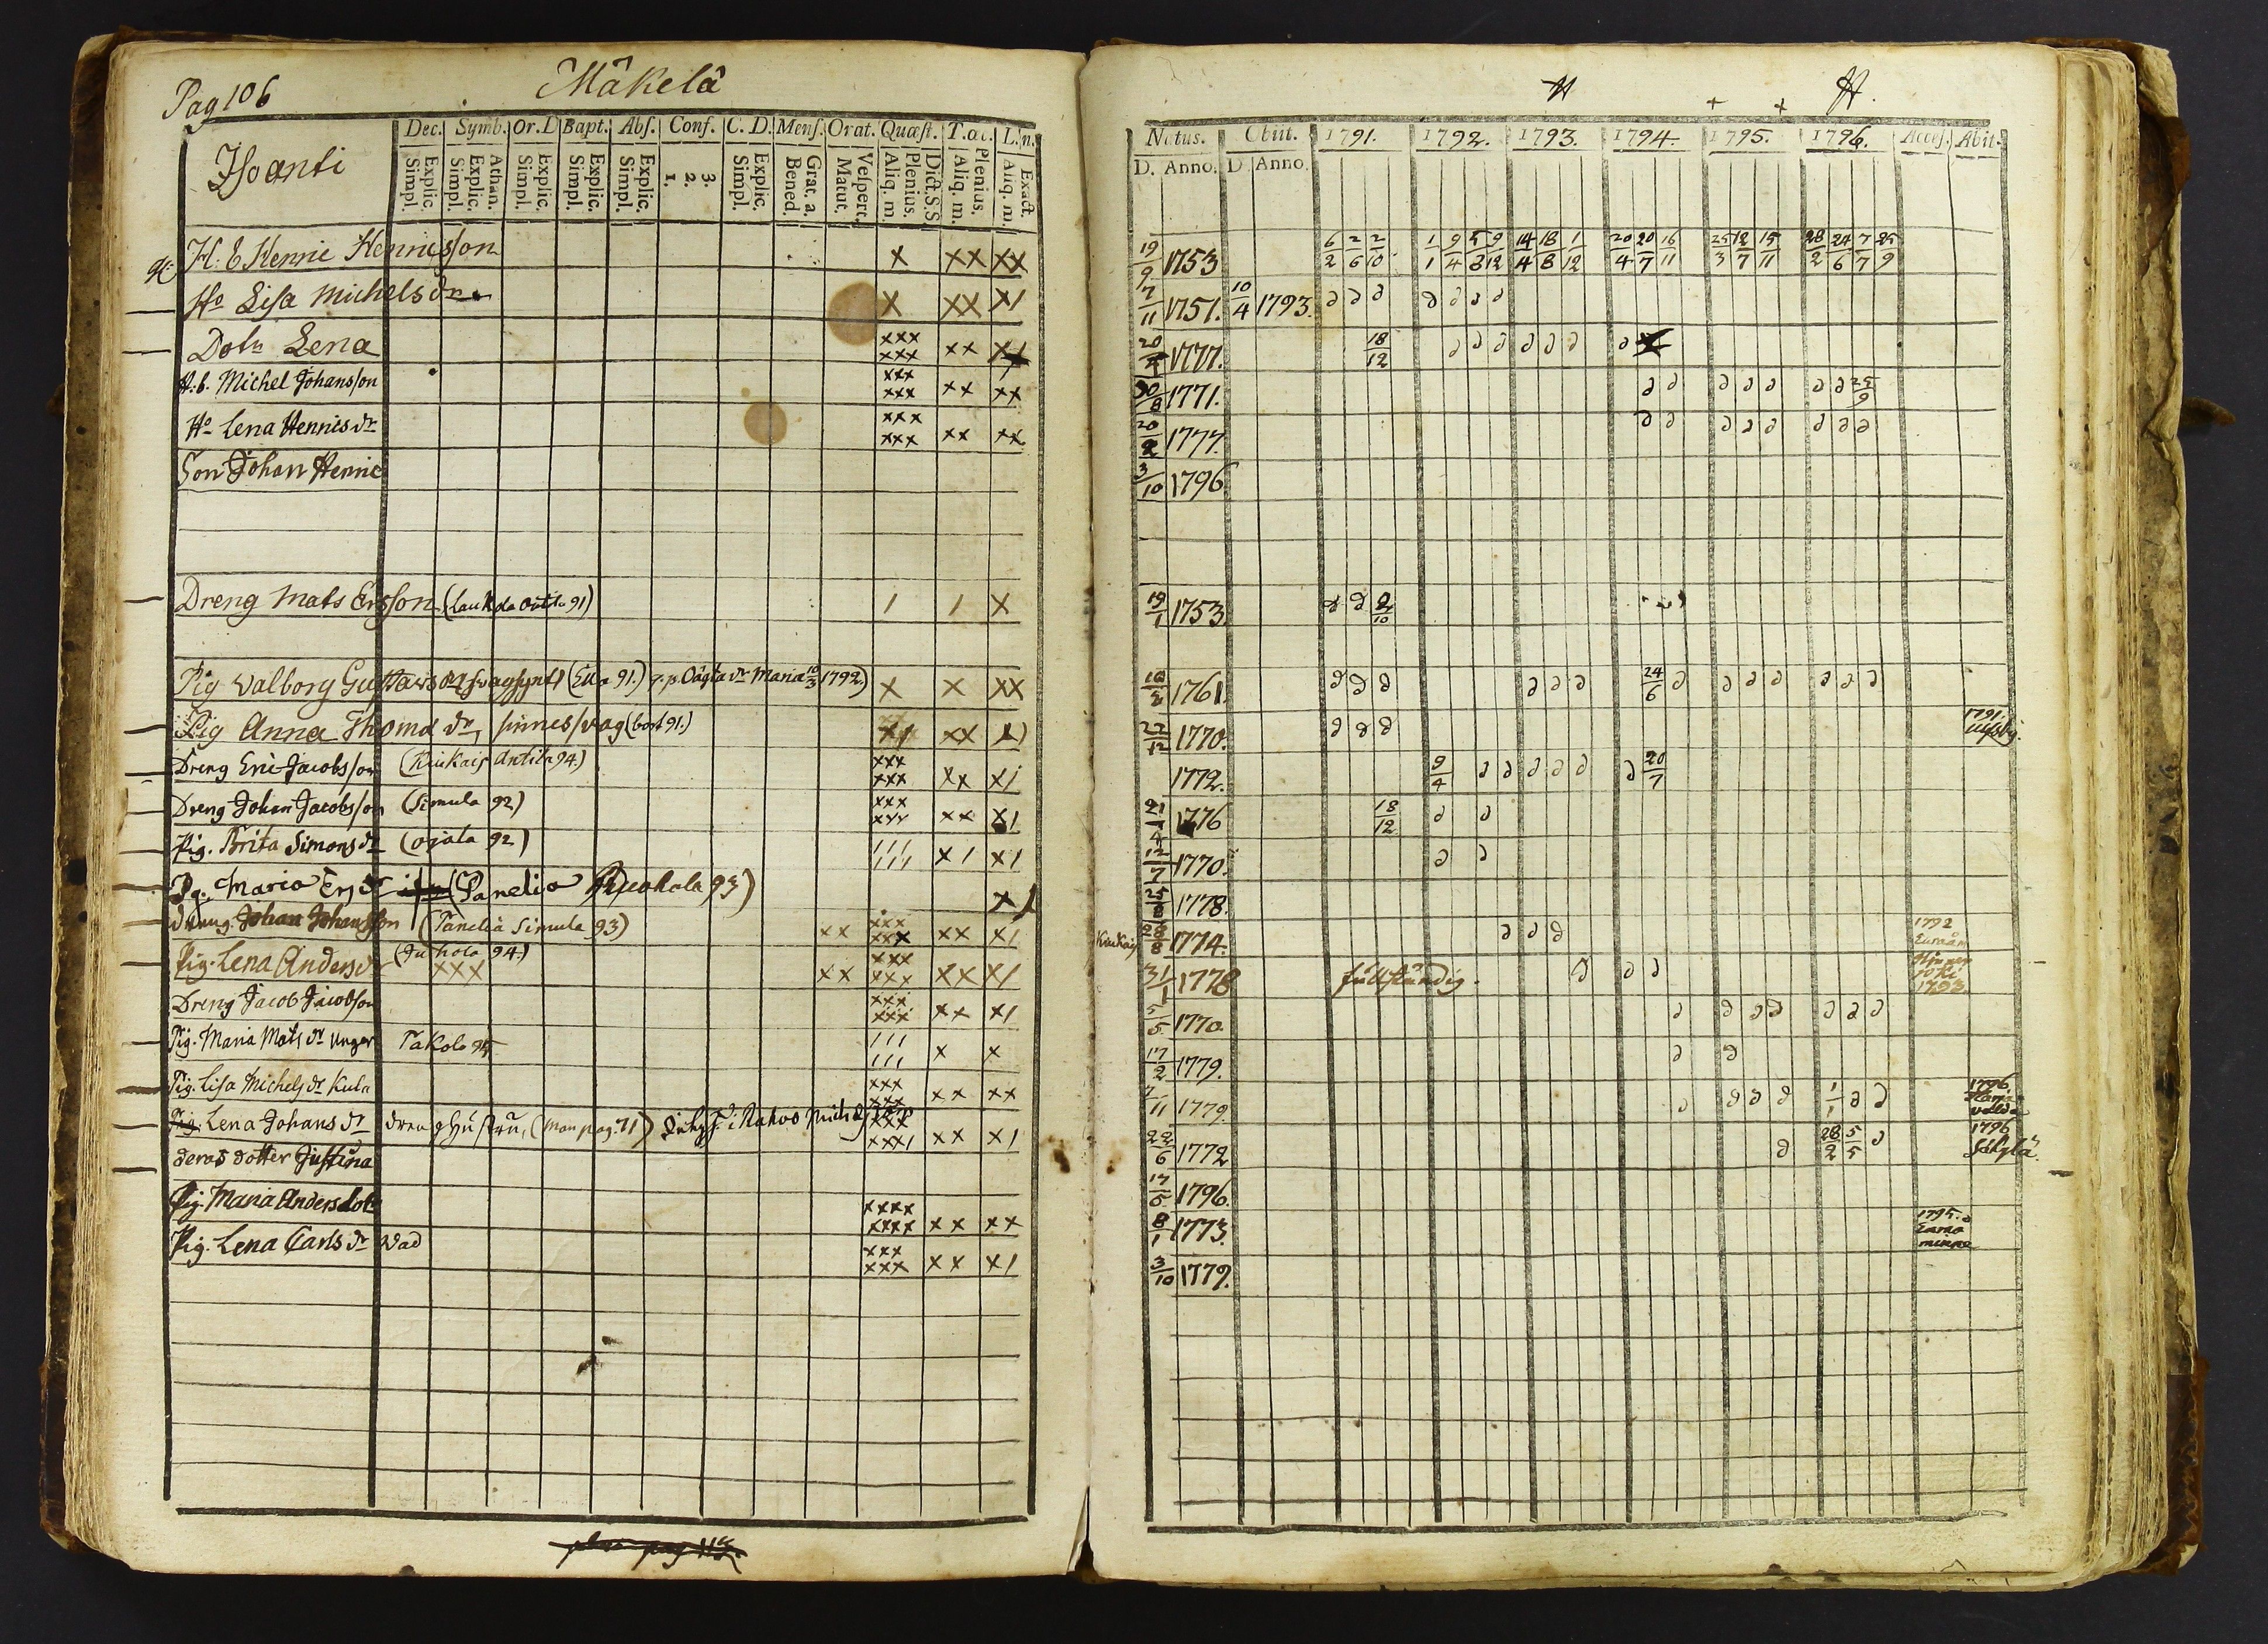 Pag 106 Mäkelä
Dec. Symb. Or.D Bapt. Abs. Conf. C.D. Mens. Orat. Quæst. T.oc. L.n.
Isoanti
Explic. Simpl. Athan. Explic. Simpl. Explic. Simpl. Explic. Simpl. Explic. Simpl. 3. 2. 1. Explic. Simpl. Grat. a. Bened. Vespert. Matut. Dict.S.S Plenius. Aliq. m. Plenius. Aliq. m. Exact. Aliq. m.
H. b Henric Henricsson X XX XX
Ho Lisa Michels dr X XX X/
Dotr Lena xxx xxx xx X/
H:b. Michel Johansson xxx xxx xx xx
Ho Lena Henrics dr xxx xxx xx xx
Son Johan Henric
Dreng Mats Ersson (Laukola 91) / / X
Pig Valborg Gustavs (Eura 91.) Maria 10/3 1792) X X XX
Pig Anna Thoma dr, (bort 91.) xx
Dreng Eric Jacobsson (Kiukais Antila 94.) xxx xxx xx x/
Dreng Johan Jacobsson (Simula 92) xxx xxx xx x/
Pig. Brita Simons dr (ojala 92) /// /// x/ x/
Pg. Maria Ers dr (Panelia 93) x/
Dreng Johan Johansson (Panelia Simula 93) xx xxx xxx xx x/
Pig. Lena Anders dr (Juhola 94.) XXX xx xxx xxx XX X/
Dreng Jacob Jacobson xxx xxx xx x/
Pig. Maria Mats dr Unger Takolo 95 /// /// x x
Pig. Lisa Michels dr Kula xxx xxx xx xx
Pig. Lena Johans dr dreng hustru, (man pag. 71) xxx xxx/ xx x/
deras dotter Justina
Pig. Maria Anders dotr xxxx xxxx xx xx
Pig. Lena Carls dr Wad xxx xxx xx x/
pag 112
Natus. Obiit. 1791. 1792. 1793. 1794. 1795. 1796. Acces. Abit.
D. Anno. D Anno.
19/9 1753 6/2 2/6 2/10 1/1 9/4 5/8 9/12 14/4 18/8 1/12 20/4 20/7 16/11 25/3 12/7 15/11 28/2 24/6 7/7 25/9
7/11 1751. 10/4 1793. ∂ ∂ ∂ ∂ ∂ ∂ ∂
20 1777. 18/12 ∂ ∂ ∂ ∂ ∂ ∂ ∂
30/8 1771. ∂ ∂ ∂ ∂ ∂ ∂ ∂ 25/9
20/2 1777. ∂ ∂ ∂ ∂ ∂ ∂ ∂ ∂
3/10 1796
19/1 1753. ∂ ∂ 2/10
1761. ∂ ∂ ∂ ∂ ∂ ∂ 24/6 ∂ ∂ ∂ ∂ ∂ ∂ ∂
27/12 1770. ∂ ∂ ∂ 1791. Ulfsby.
1772. 9/4 ∂ ∂ ∂ ∂ ∂ ∂ 20/7
21/4 1776 18/12 ∂ ∂
12/7 1770. ∂ ∂
25/8 1778.
Kiukais 28/8 1774. ∂ ∂ ∂ 1792 Euraåm
31/1 1778 fullständig. ∂ ∂ ∂ Hinnerjoki 1793.
5/5 1770. ∂ ∂ ∂ ∂ ∂ ∂ ∂
17/2 1779. ∂ ∂
7/11 1779. ∂ ∂ ∂ ∂ 1/1 ∂ ∂ 1796. Harjavalda
22/6 1772 ∂ 28/2 5/5 ∂ 1796 Säkylä.
17/5 1796.
8/1 1773. 1795. Euraåminne
3/10 1779.